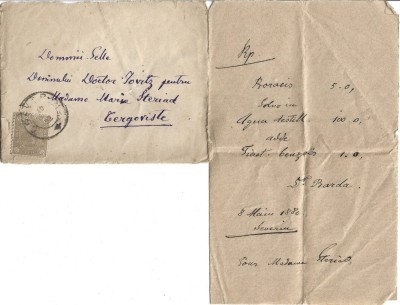 Domniei Selle
Domnului Doctor Iovitz pentru
Madame Marie Steriad
Tergoviste
Rp
Boracis 5.0,
Solve in
Aqua destill 100.0,
adde
Tinct. benzoës 1.0,
Dr Barda
8 Maiu 1880
Severin
Pour Madame Steriad